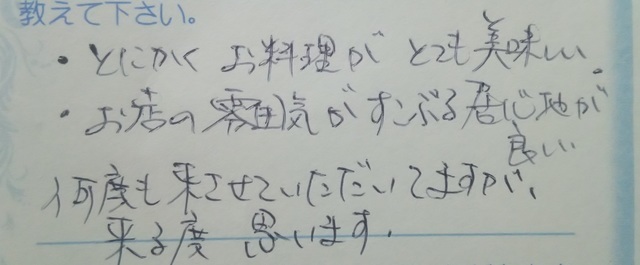 教えて下さい。
・とにかく お料理が とても美味しい。
・お店の雰囲気がすこぶる居心地が
良い
何度も来させていただいてますが、
来る度 思います。